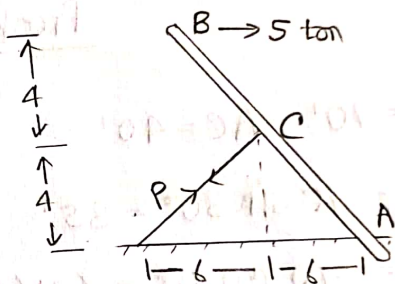 B → 5 ton
4
C
4
P
A
6
6